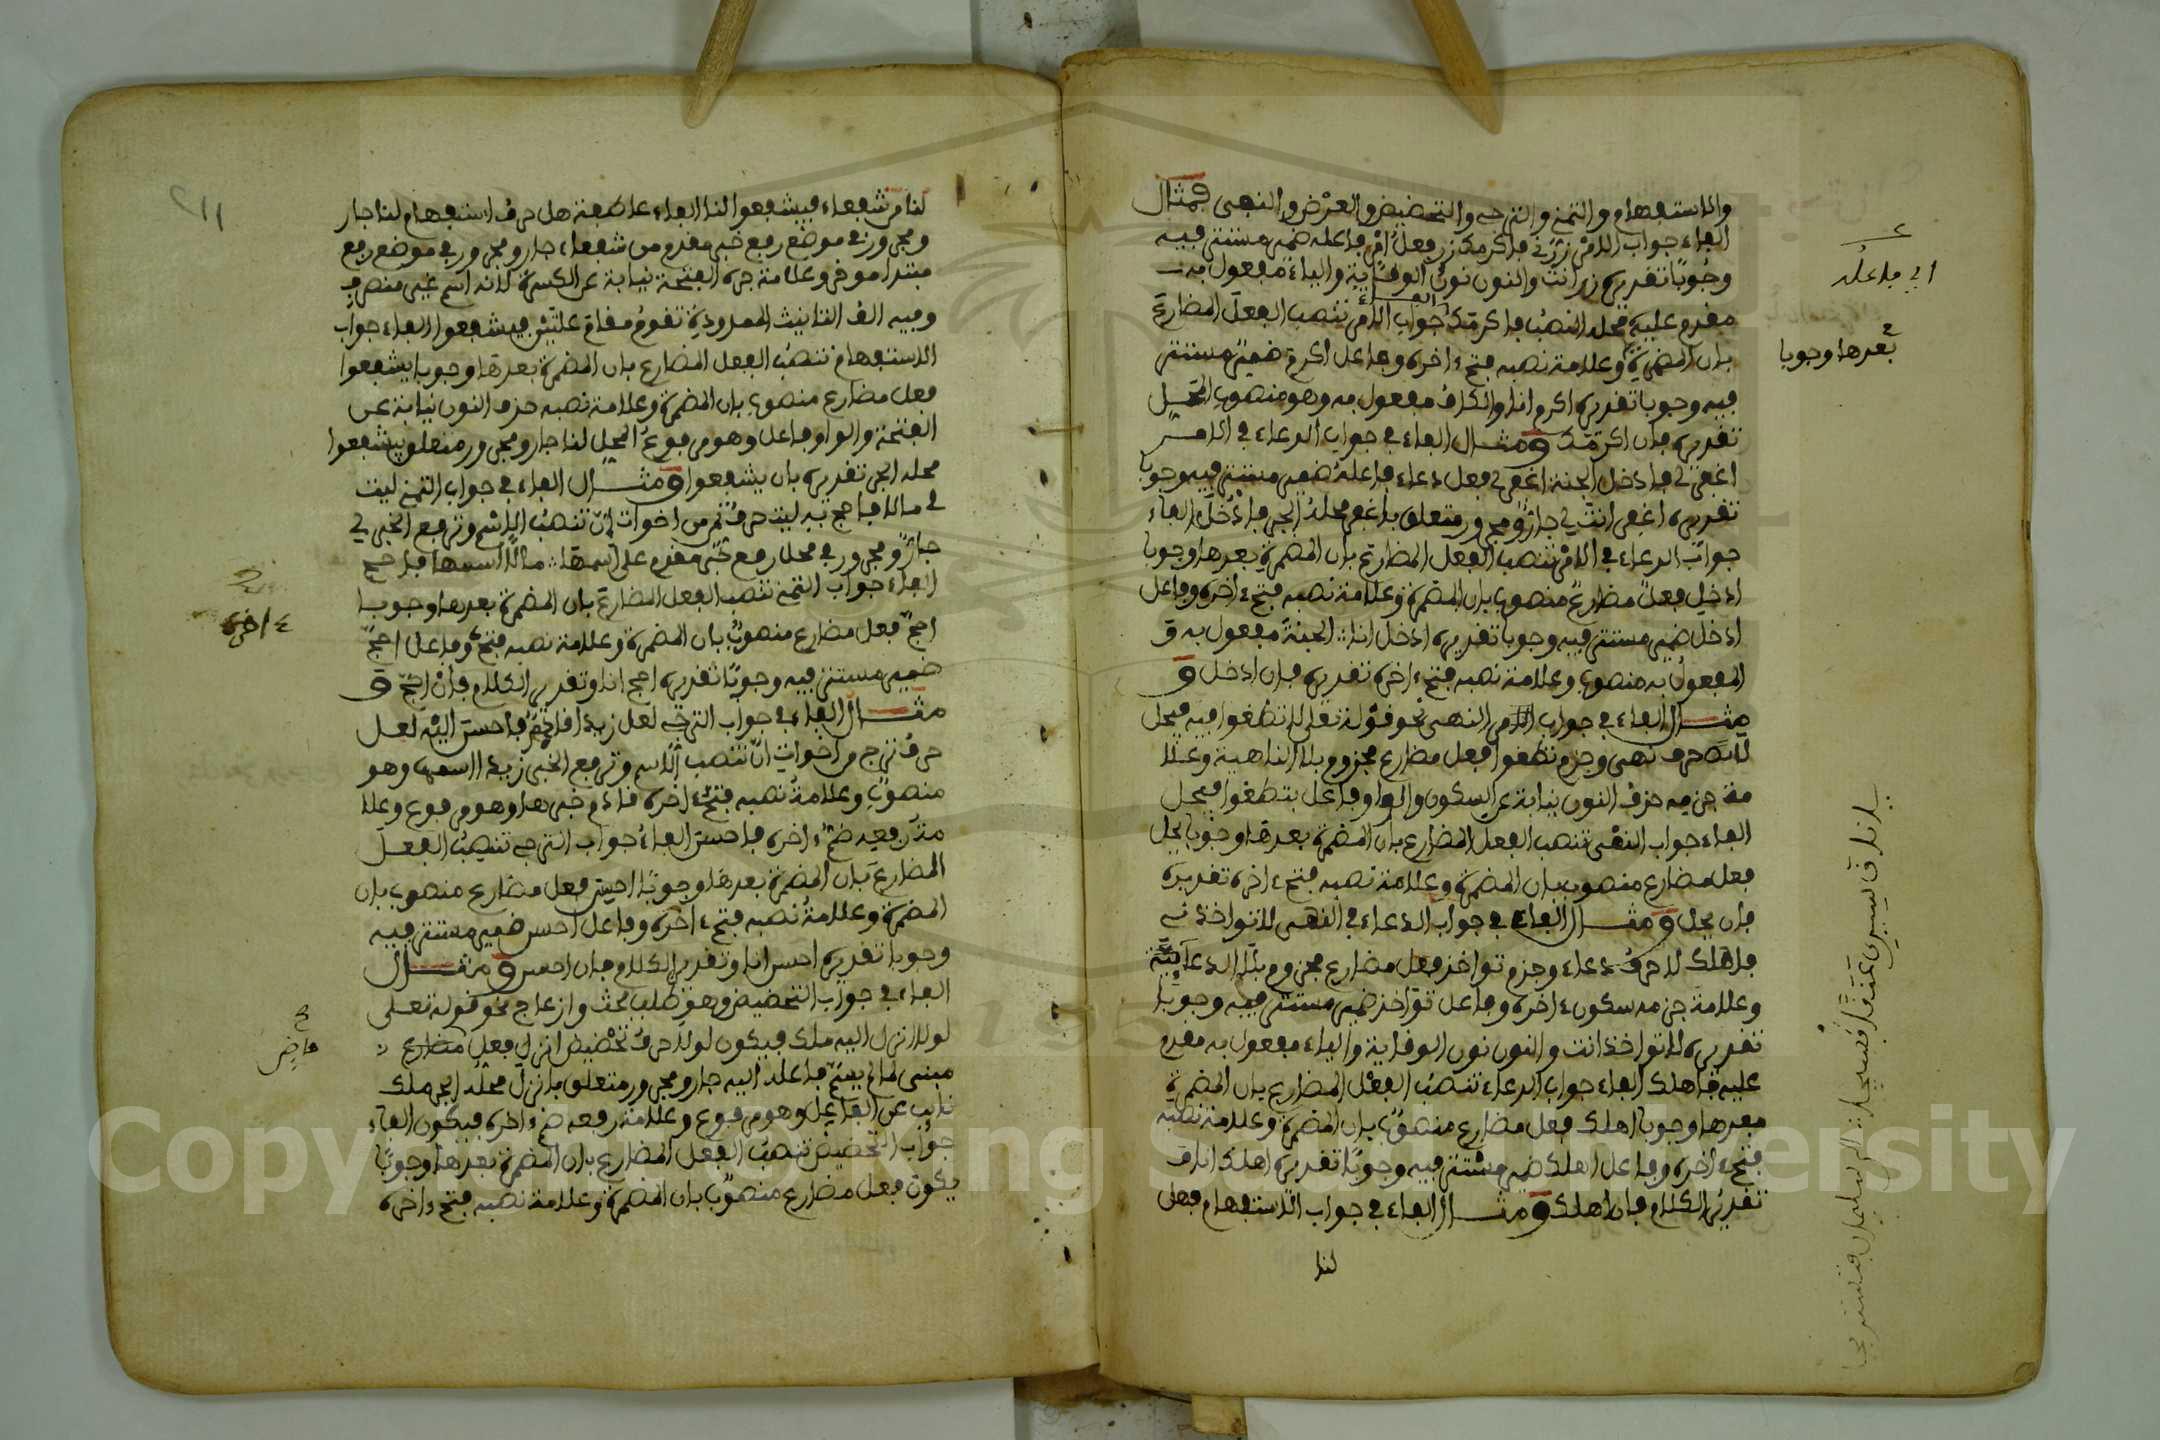 والاستفهام والتمني والترجي والتحضيض والعرض والنفي فمثال
الفاء جواب الامر زرني فاكرمك زر فعل امر فاعله ضمير مستتر فيه
وجوبا تقديره زر انت والنون نون الوقاية والياء مفعول به
مقدم عليه محله النصب فاكرمك الفاء جواب الامر تنصب الفعل المضارع
بان المضمرة وعلامة نصبه فتحة ءاخره وفاعل اكرم ضمير مستتر
فيه وجوبا تقديره اكرم انا والكاف مفعول به وهو منصوب المحل
تقديره فان اكرمك ومثال الفاء في جواب الدعاء في الامر
اغفر لي فادخل الجنة اغفر لي فعل دعاء فاعله ضمير مستتر فيه وجوبا
تقديره اغفر انت لي جار ومجرور متعلق باغفر محله الجر فادخل الفاء
جواب الدعاء في الامر تنصب الفعل المضارع بان المضمرة بعدها وجوبا
ادخل فعل مضارع منصوب بان المضمرة وعلامة نصبه فتحة ءاخره وفاعل
ادخل ضمير مستتر فيه وجوبا تقديره ادخل انا الجنة مفعول به و
المفعول به منصوب وعلامة نصبه فتحة ءاخره تقديره فان ادخل و
مثال الفاء في جواب النهي نحو قوله تعلى لا تطغوا فيه فيحل
لا حرف نهي وجزم تطغوا فعل مضارع مجزوم بلا الناهية وعلا
مة جزمه حذف النون نيابة عن السكون والواو فاعل بتطغوا فيحل
الفاء جواب النهي تنصب الفعل المضارع بان المضمرة بعدها وجوبا يحل
فعل مضارع منصوب بان المضمرة وعلامة نصبه فتحة ءاخره تقديره
فان يحل ومثال الفاء في جواب الدعاء في النهي لا تواخذني
فاهلك لا حرف دعاء وجزم تواخذ فعل مضارع مجزوم بلا الدعائية
وعلامة جزمه سكون ءاخره وفاعل تواخذ ضمير مستتر فيه وجوبا
تقديره لا تواخذ انت والنون نون الوقاية والياء مفعول به مقدم
عليه فاهلك الفاء جواب الدعاء تنصب الفعل المضارع بان المضمرة
بعدها وجوبا اهلك فعل مضارع منصوب بان المضمرة وعلامة نصبه
فتحة ءاخره وفاعل اهلك ضمير مستتر فيه وجوبا تقديره اهلك انا و
تقدير الكلام فان اهلك ومثال الفاء في جواب الاستفهام فهل
لنا
اي فاعله
بعدها وجوبا
لنا من شفعاء فيشفعوا لنا الفاء عاطفة هل حرف استفهام لنا جار
ومجرور في موضع رفع خبر مقدم من شفعاء جار ومجرور في موضع رفع
مبتدا موخر وعلامة جره الفتحة نيابة عن الكسرة لانه اسم غير منصرف
وفيه الف التانيث الممدودة تقوم مقام علتين فيشفعوا الفاء جواب
الاستفهام تنصب الفعل المضارع بان المضمرة بعدها وجوبا يشفعوا
فعل مضارع منصوب بان المضمرة وعلامة نصبه حذف النون نيابة عن
الفتحة والواو فاعل وهو مرفوع المحل لنا جار ومجرور متعلق بيشفعوا
محله الجر تقديره بان يشفعوا ومثال الفاء في جواب التمني ليت
لي مالا فاحج به ليت حرف تمن من اخوات ان تنصب الاسم وترفع الخبر لي
جار ومجرور في محل رفع خبر مقدم على اسمها مالا اسمها فاحج
الفاء جواب التمني تنصب الفعل المضارع بان المضمرة بعدها وجوبا
احج فعل مضارع منصوب بان المضمرة وعلامة نصبه فتحة وفاعل احج
ضمير مستتر فيه وجوبا تقديره احج انا وتقدير الكلام فان احج و
مثال الفاء في جواب الترجي لعل زيدا قادم فاحسن اليه لعل
حرف ترج من اخوات ان تنصب الاسم وترفع الخبر زيدا اسمها وهو
منصوب وعلامة نصبه فتحة ءاخره قادم خبرها وهو مرفوع وعلا
مة رفعه ضمة ءاخره فاحسن الفاء جواب الترجي تنصب الفعل
المضارع بان المضمرة بعدها وجوبا احسن فعل مضارع منصوب بان
المضمرة وعلامة نصبه فتحة ءاخره وفاعل احسن ضمير مستتر فيه
وجوبا تقديره احسن انا وتقدير الكلام فان احسن ومثال
الفاء في جواب التحضيض وهو طلب بحث وازعاج نحو قوله تعلى
لولا انزل اليه ملك فيكون لولا حرف تحضيض انزل فعل مضارع
مبني لما لم يسم فاعله اليه جار ومجرور متعلق بانزل محله الجر ملك
نايب عن الفاعل وهو مرفوع وعلامة رفعه ضمة ءاخره فيكون الفاء
جواب التحضيض تنصب الفعل المضارع بان المضمرة بعدها وجوبا
يكون فعل مضارع منصوب بان المضمرة وعلامة نصبه فتحة ءاخره
ءاخره
ماض
211
Copyright © King Saud University